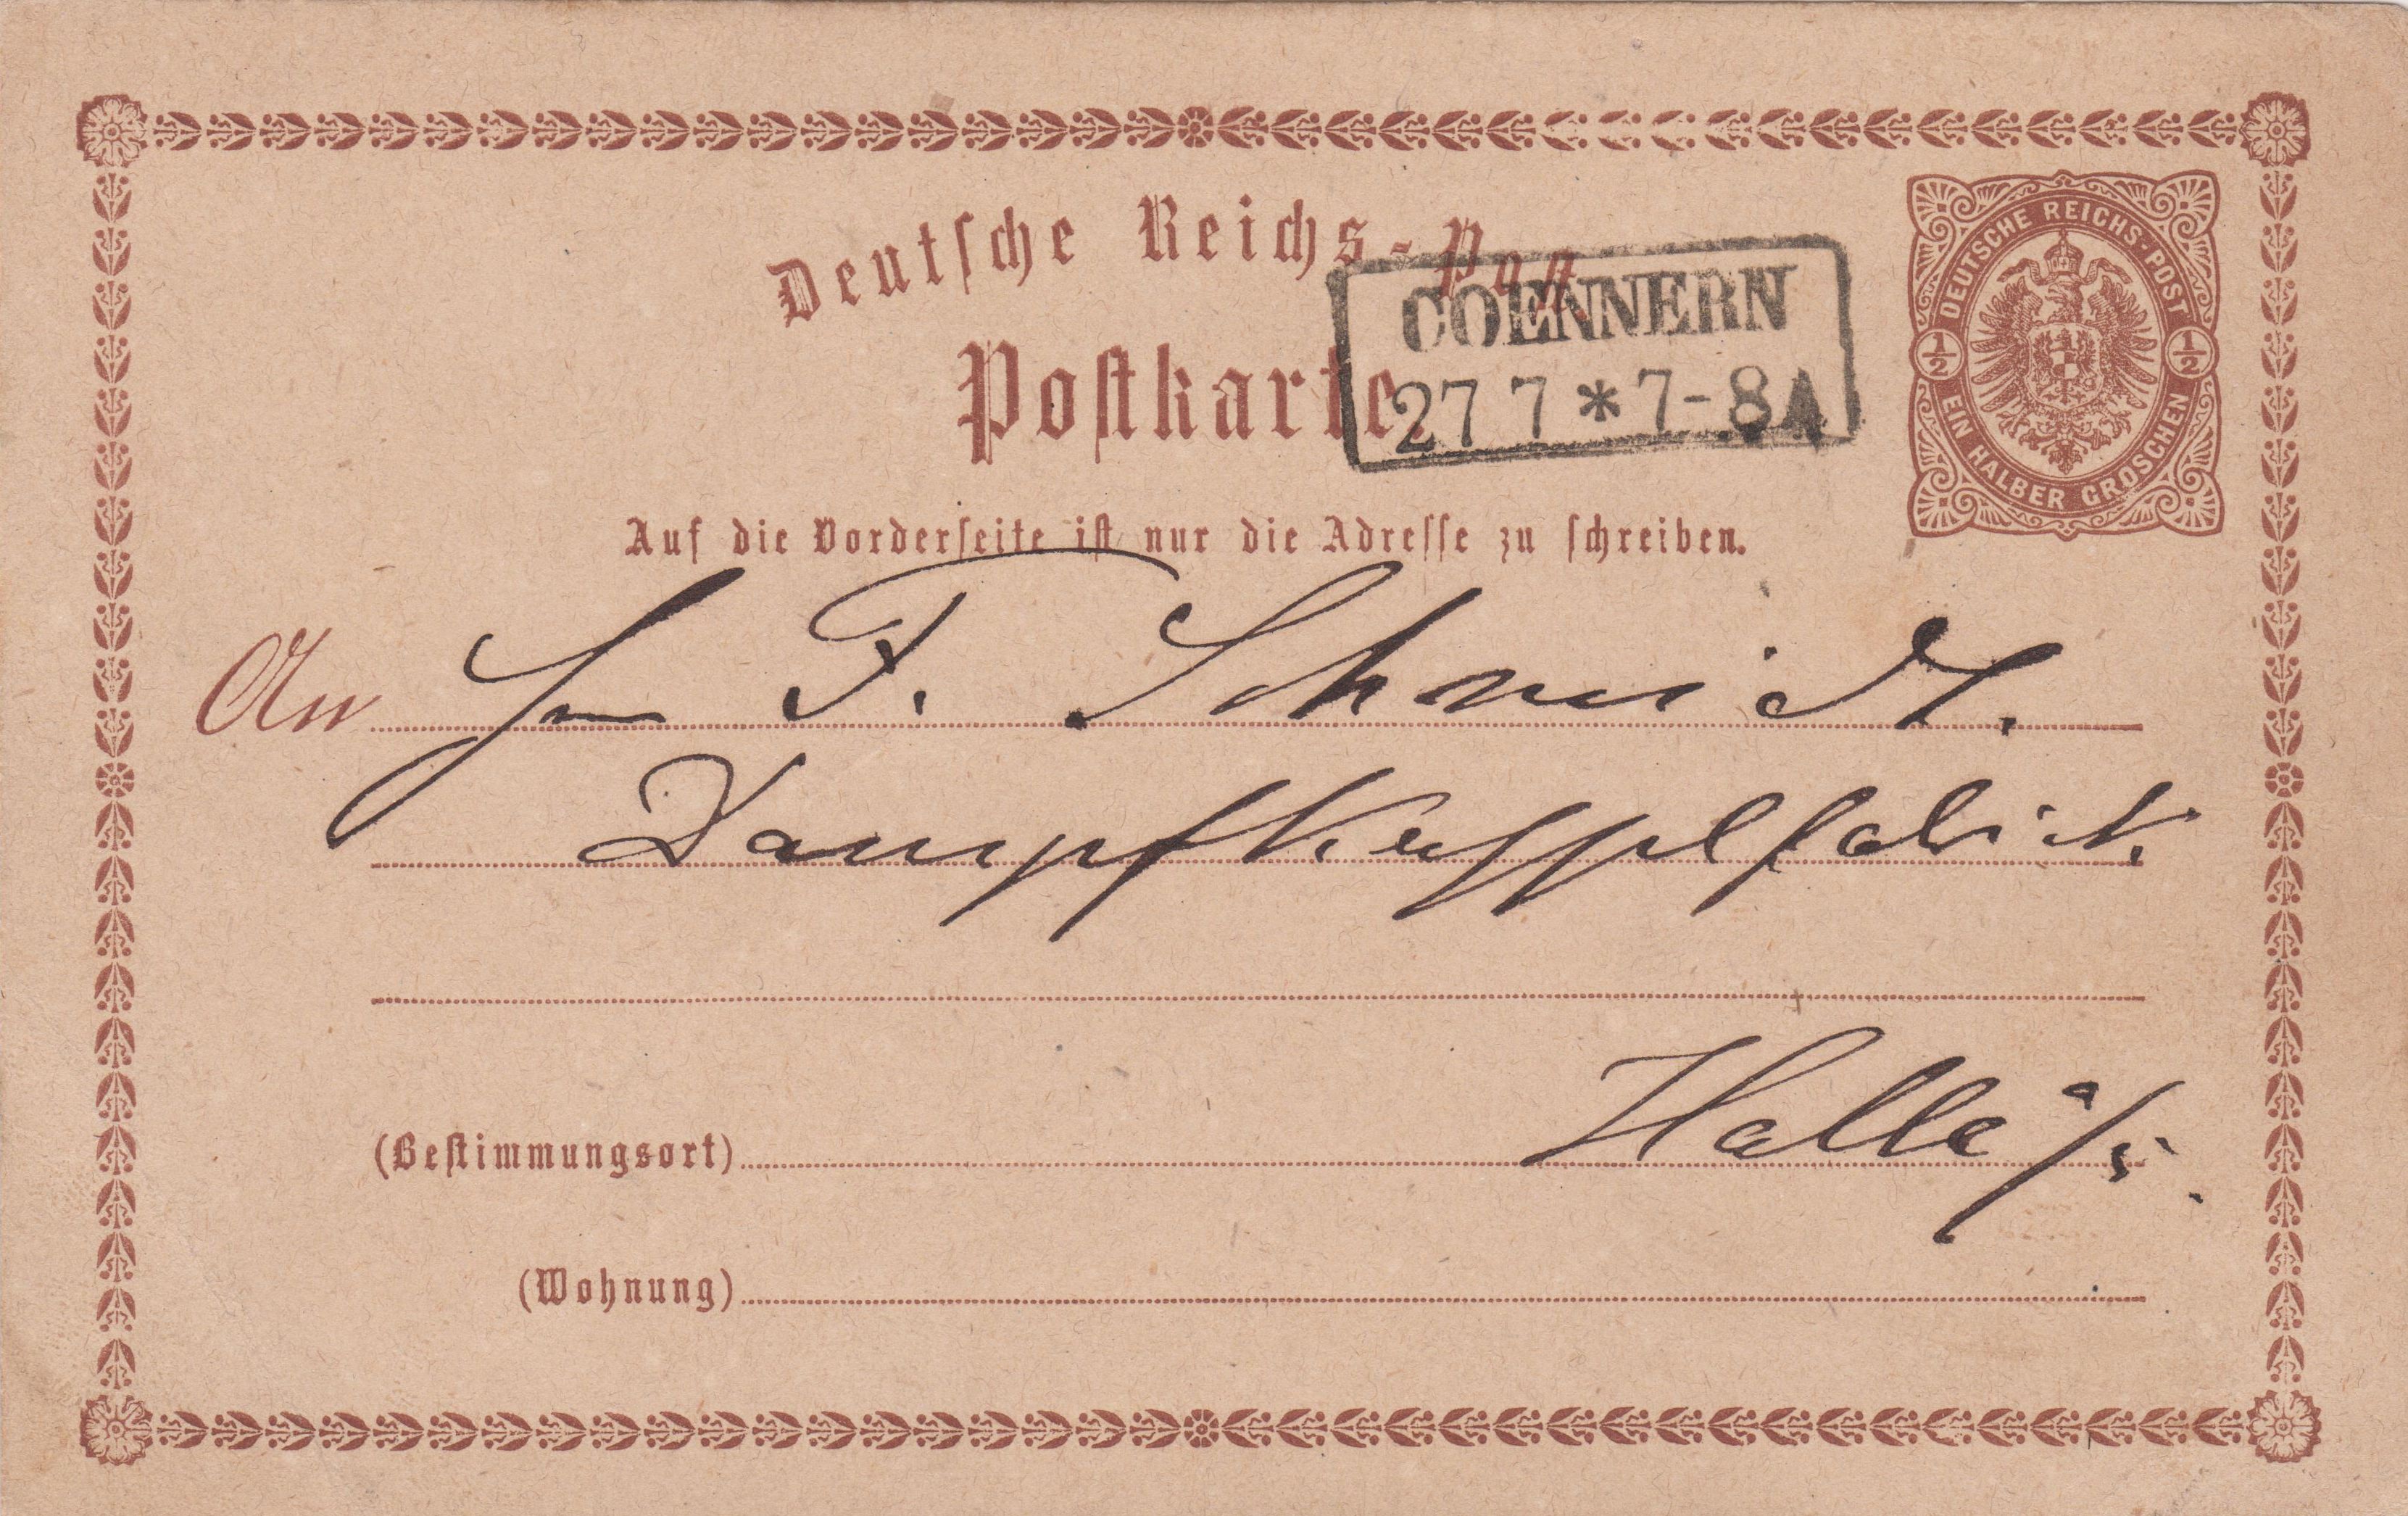 Deutsche Reichs-Post
Postkarte
COENNERN
27 7 * 7-8 A
DEUTSCHE REICHS-POST
1/2 1/2
EIN HALBER GROSCHEN
Auf die Vorderseite ist nur die Adresse zu schreiben.
An F. Schmidt.
Dampfkesselfabrik
Halle a/S.
(Bestimmungsort)
(Wohnung)